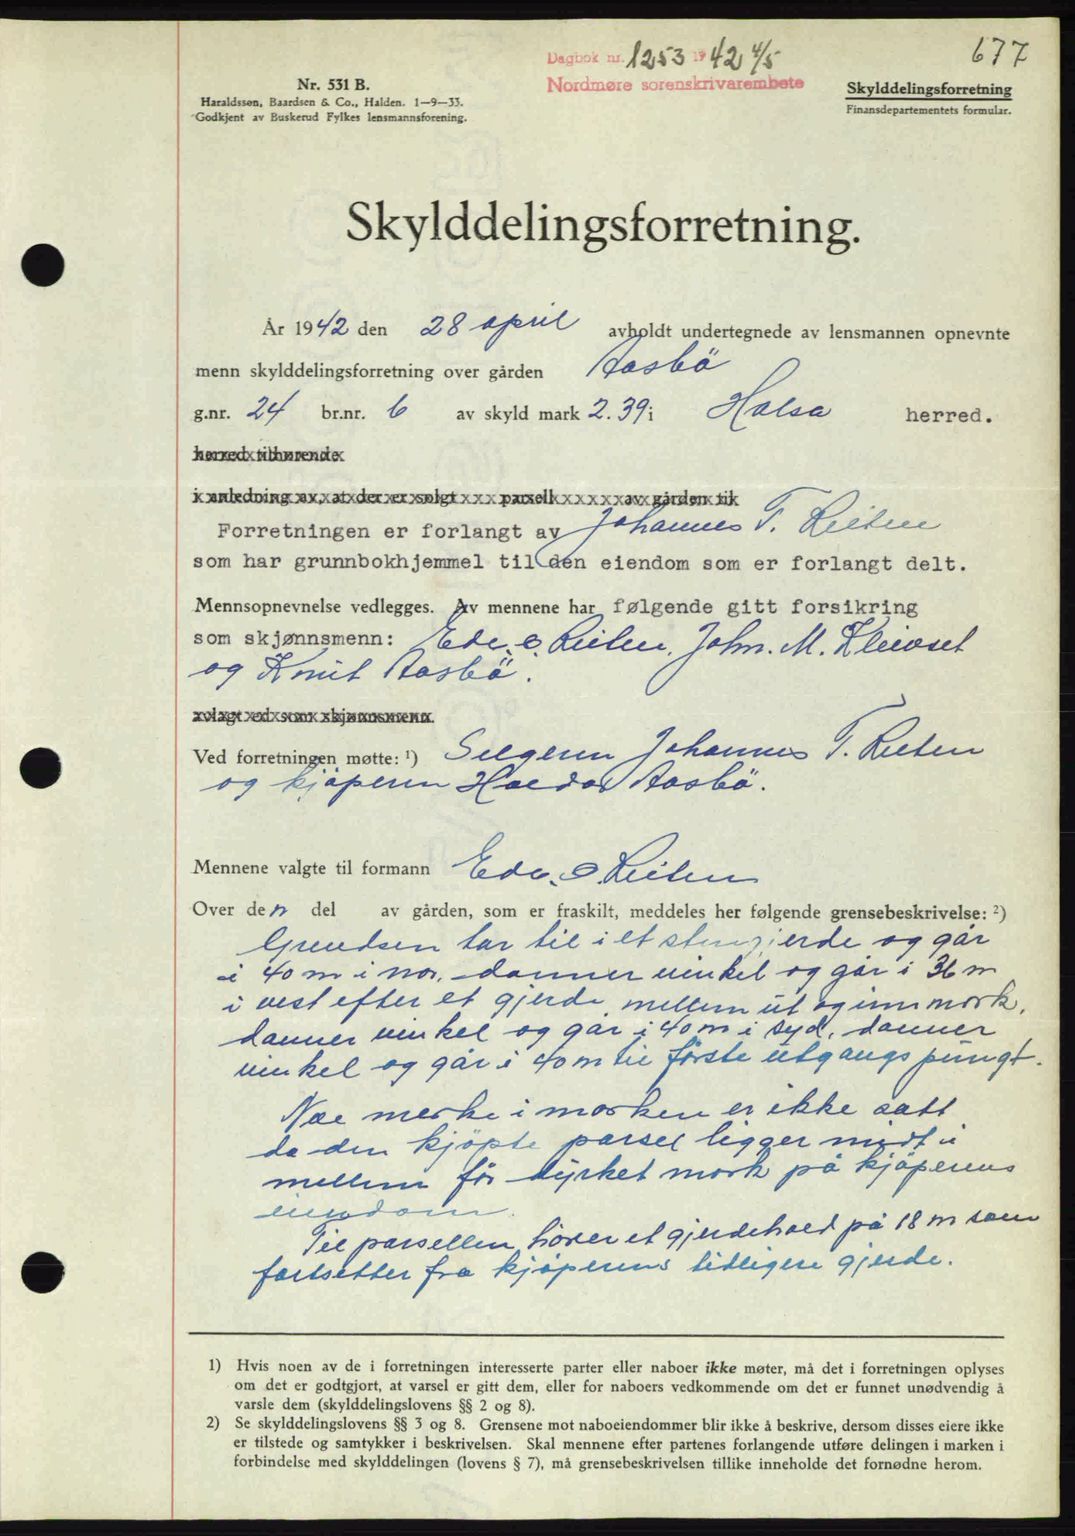 677
Dagbok nr. 1253 1942 4/5
Nordmøre sorenskrivarembete
Nr. 531 B.
Haraldssen, Baardsen & Co., Halden. 1—9—33.
Godkjent av Buskerud Fylkes lensmannsforening.
Skylddelingsforretning
Finansdepartementets formular.
Skylddelingsforretning.
År 1942 den 28 april avholdt undertegnede av lensmannen opnevnte
menn skylddelingsforretning over gården Aasbö
g.nr. 24 br.nr. 6 av skyld mark 2.39 i Halsa herred.
herred tilhørende
i anledning av, at der er solgt parsell av gården til
Forretningen er forlangt av Johannes T. Leiten
som har grunnbokhjemmel til den eiendom som er forlangt delt.
Mennsopnevnelse vedlegges. Av mennene har følgende gitt forsikring
som skjønnsmenn: Edv. O. Leiten, John. M. Kleivset
og Knut Aasbö.
avlagt ed som skjønnsmenn.
Ved forretningen møtte: ¹) Selgeren Johannes T. Leiten
og kjöperen Haldor Aasbö.
Mennene valgte til formann Edv. O Leiten
Over den del av gården, som er fraskilt, meddeles her følgende grensebeskrivelse: ²)
Grendsen tar til i et stengjerde og går
i 40 m i nor, danner vinkel og går i 36 m
i vest efter et gjerde mellem ut og innmork,
danner vinkel og går i 40 m i syd, danner
vinkel og går i 40 m til förste utgangspungt.
Noe merke i marken er ikke satt
da den kjöpte parsel ligger midt i
mellem för dyrket mork på kjöperens
eiendom.
Til parsellen hörer et gjerdehold på 18 m som
fortsetter fra kjöperens tidligere gjerde.
1) Hvis noen av de i forretningen interesserte parter eller naboer ikke møter, må det i forretningen oplyses
om det er godtgjort, at varsel er gitt dem, eller for naboers vedkommende om det er funnet unødvendig å
varsle dem (skylddelingslovens §§ 2 og 8).
2) Se skylddelingslovens §§ 3 og 8. Grensene mot naboeiendommer blir ikke å beskrive, dersom disses eiere ikke
er tilstede og samtykker i beskrivelsen. Skal mennene efter partenes forlangende utføre delingen i marken i
forbindelse med skylddelingen (lovens § 7), må grensebeskrivelsen tillike inneholde det fornødne herom.